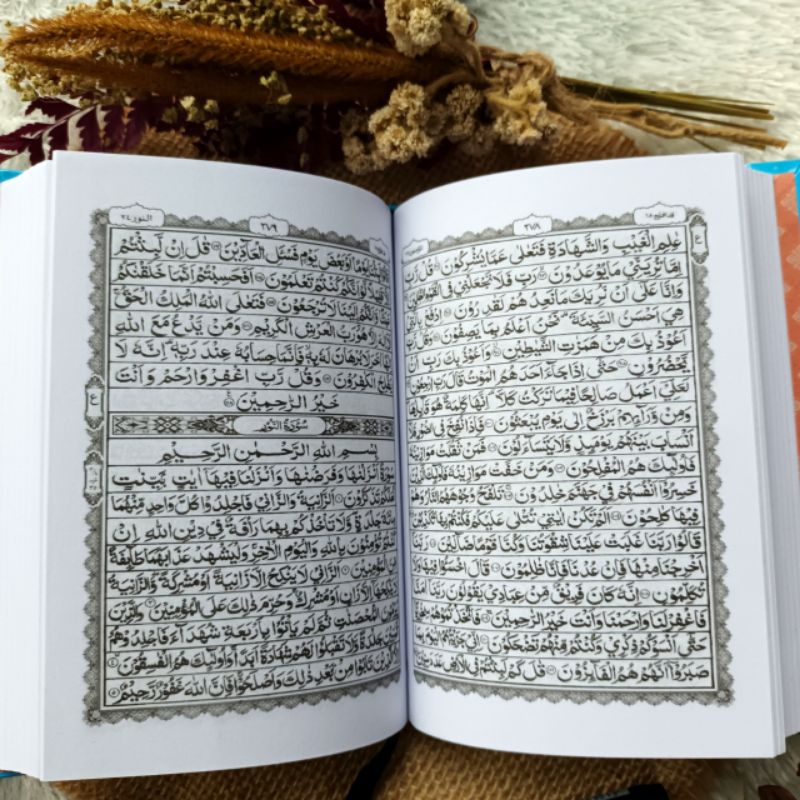 قد افلح ١٨
عٰلِمِ الْغَيْبِ وَالشَّهَادَةِ فَتَعٰلٰى عَمَّا يُشْرِكُوْنَ قُلْ رَّبِّ
اِمَّا تُرِيَنِّيْ مَا يُوْعَدُوْنَ رَبِّ فَلَا تَجْعَلْنِيْ فِى الْقَوْمِ الظّٰلِمِيْنَ
وَاِنَّا عَلٰٓى اَنْ نُّرِيَكَ مَا نَعِدُهُمْ لَقٰدِرُوْنَ اِدْفَعْ بِالَّتِيْ
هِيَ اَحْسَنُ السَّيِّئَةَ نَحْنُ اَعْلَمُ بِمَا يَصِفُوْنَ وَقُلْ رَّبِّ
اَعُوْذُ بِكَ مِنْ هَمَزٰتِ الشَّيٰطِيْنِ وَاَعُوْذُ بِكَ رَبِّ اَنْ
يَّحْضُرُوْنِ حَتّٰٓى اِذَا جَآءَ اَحَدَهُمُ الْمَوْتُ قَالَ رَبِّ ارْجِعُوْنِ
لَعَلِّيْٓ اَعْمَلُ صَالِحًا فِيْمَا تَرَكْتُ كَلَّا اِنَّهَا كَلِمَةٌ هُوَ قَآئِلُهَا
وَمِنْ وَّرَآئِهِمْ بَرْزَخٌ اِلٰى يَوْمِ يُبْعَثُوْنَ فَاِذَا نُفِخَ فِى الصُّوْرِ فَلَآ
اَنْسَابَ بَيْنَهُمْ يَوْمَئِذٍ وَّلَا يَتَسَآءَلُوْنَ فَمَنْ ثَقُلَتْ مَوَازِيْنُهٗ
فَاُولٰٓئِكَ هُمُ الْمُفْلِحُوْنَ وَمَنْ خَفَّتْ مَوَازِيْنُهٗ فَاُولٰٓئِكَ الَّذِيْنَ
خَسِرُوْٓا اَنْفُسَهُمْ فِيْ جَهَنَّمَ خٰلِدُوْنَ تَلْفَحُ وُجُوْهَهُمُ النَّارُ وَهُمْ
فِيْهَا كٰلِحُوْنَ اَلَمْ تَكُنْ اٰيٰتِيْ تُتْلٰى عَلَيْكُمْ فَكُنْتُمْ بِهَا تُكَذِّبُوْنَ
قَالُوْا رَبَّنَا غَلَبَتْ عَلَيْنَا شِقْوَتُنَا وَكُنَّا قَوْمًا ضَآلِّيْنَ رَبَّنَآ
اَخْرِجْنَا مِنْهَا فَاِنْ عُدْنَا فَاِنَّا ظٰلِمُوْنَ قَالَ اخْسَـُٔوْا فِيْهَا وَلَا
تُكَلِّمُوْنِ اِنَّهٗ كَانَ فَرِيْقٌ مِّنْ عِبَادِيْ يَقُوْلُوْنَ رَبَّنَآ اٰمَنَّا
فَاغْفِرْ لَنَا وَارْحَمْنَا وَاَنْتَ خَيْرُ الرّٰحِمِيْنَ فَاتَّخَذْتُمُوْهُمْ سِخْرِيًّا
حَتّٰٓى اَنْسَوْكُمْ ذِكْرِيْ وَكُنْتُمْ مِّنْهُمْ تَضْحَكُوْنَ اِنِّيْ جَزَيْتُهُمُ الْيَوْمَ بِمَا
صَبَرُوْٓا اَنَّهُمْ هُمُ الْفَآئِزُوْنَ قٰلَ كَمْ لَبِثْتُمْ فِى الْاَرْضِ عَدَدَ سِنِيْنَ
النور ٢٤
يَوْمًا اَوْ بَعْضَ يَوْمٍ فَسْـَٔلِ الْعَآدِّيْنَ قٰلَ اِنْ لَّبِثْتُمْ
اِلَّا قَلِيْلًا لَّوْ اَنَّكُمْ كُنْتُمْ تَعْلَمُوْنَ اَفَحَسِبْتُمْ اَنَّمَا خَلَقْنٰكُمْ
عَبَثًا وَّاَنَّكُمْ اِلَيْنَا لَا تُرْجَعُوْنَ فَتَعٰلَى اللّٰهُ الْمَلِكُ الْحَقُّ
لَآ اِلٰهَ اِلَّا هُوَ رَبُّ الْعَرْشِ الْكَرِيْمِ وَمَنْ يَّدْعُ مَعَ اللّٰهِ
اِلٰهًا اٰخَرَ لَا بُرْهَانَ لَهٗ بِهٖ فَاِنَّمَا حِسَابُهٗ عِنْدَ رَبِّهٖ اِنَّهٗ لَا
يُفْلِحُ الْكٰفِرُوْنَ وَقُلْ رَّبِّ اغْفِرْ وَارْحَمْ وَاَنْتَ
خَيْرُ الرّٰحِمِيْنَ
سُوْرَةُ النُّوْرِ
بِسْمِ اللّٰهِ الرَّحْمٰنِ الرَّحِيْمِ
سُوْرَةٌ اَنْزَلْنٰهَا وَفَرَضْنٰهَا وَاَنْزَلْنَا فِيْهَآ اٰيٰتٍۢ بَيِّنٰتٍ
لَّعَلَّكُمْ تَذَكَّرُوْنَ اَلزَّانِيَةُ وَالزَّانِيْ فَاجْلِدُوْا كُلَّ وَاحِدٍ مِّنْهُمَا
مِائَةَ جَلْدَةٍ وَّلَا تَأْخُذْكُمْ بِهِمَا رَأْفَةٌ فِيْ دِيْنِ اللّٰهِ اِنْ
كُنْتُمْ تُؤْمِنُوْنَ بِاللّٰهِ وَالْيَوْمِ الْاٰخِرِ وَلْيَشْهَدْ عَذَابَهُمَا طَآئِفَةٌ
مِّنَ الْمُؤْمِنِيْنَ اَلزَّانِيْ لَا يَنْكِحُ اِلَّا زَانِيَةً اَوْ مُشْرِكَةً وَّالزَّانِيَةُ
لَا يَنْكِحُهَآ اِلَّا زَانٍ اَوْ مُشْرِكٌ وَحُرِّمَ ذٰلِكَ عَلَى الْمُؤْمِنِيْنَ وَالَّذِيْنَ
يَرْمُوْنَ الْمُحْصَنٰتِ ثُمَّ لَمْ يَأْتُوْا بِاَرْبَعَةِ شُهَدَآءَ فَاجْلِدُوْهُمْ
ثَمٰنِيْنَ جَلْدَةً وَّلَا تَقْبَلُوْا لَهُمْ شَهَادَةً اَبَدًا وَاُولٰٓئِكَ هُمُ الْفٰسِقُوْنَ ٤
اِلَّا الَّذِيْنَ تَابُوْا مِنْۢ بَعْدِ ذٰلِكَ وَاَصْلَحُوْا فَاِنَّ اللّٰهَ غَفُوْرٌ رَّحِيْمٌ ٥